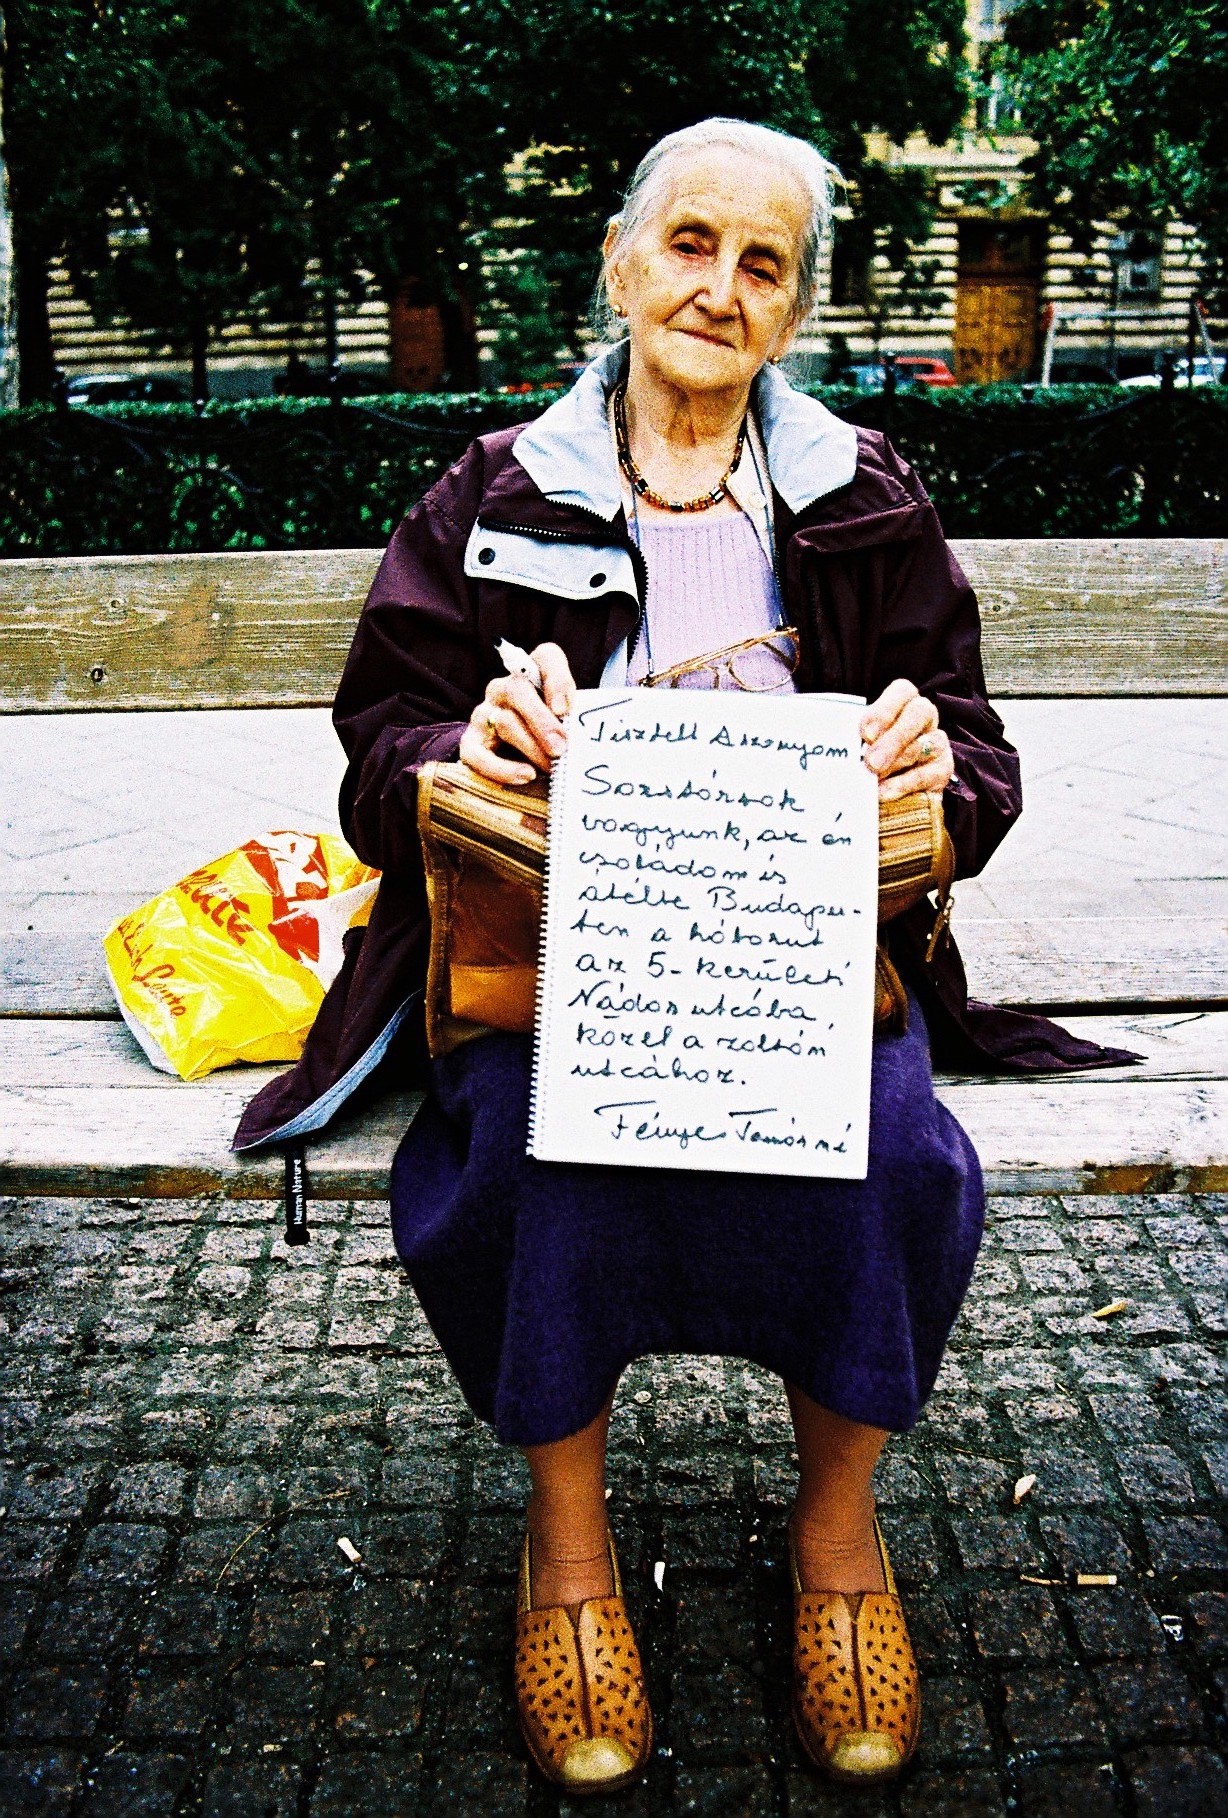 Tisztelt Asszonyom!
Sorstársak
vagyunk, az én
családom is
átélte Budapes-
ten a háborut
az 5. kerületi
Nádor utcába,
közel a zoltán
utcához.
Fényes Tamásné
Human Nature